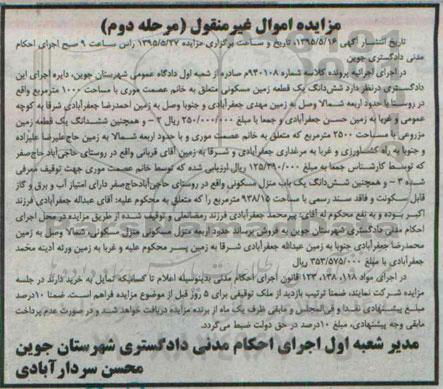 مزایده اموال غیرمنقول (مرحله دوم)
تاریخ انتشار آگهی ۱۳۹۵/۵/۱۶، تاریخ و ساعت برگزاری مزایده ۱۳۹۵/۵/۲۷ راس ساعت ۹ صبح اجرای احکام
مدنی دادگستری جوین
در اجرای اجرائیه پرونده کلاسه شماره ۹۳۰۱۰۸م صادره از شعبه اول دادگاه عمومی شهرستان جوین، دایره اجرای این
دادگستری درنظر دارد شش‌دانگ یک قطعه زمین مسکونی متعلق به خانم عصمت موری با مساحت ۱۰۰۰ مترمربع واقع
در روستای حدود اربعه شمالا وصل به زمین مهدی جعفرآبادی و جنوبا وصل به زمین احمدرضا جعفرآبادی شرقا به کوچه
عمومی و غربا به زمین حسن جعفرآبادی و جمعا با مبلغ ۲۵۰/۰۰۰/۰۰۰ ریال ۲- و همچنین ششدانگ یک قطعه زمین
مزروعی با مساحت ۲۵۰۰ مترمربع که متعلق به خانم عصمت موری و با حدود اربعه شمالا به زمین حاج علیرضا علیزاده
و جنوبا به راه کشاورزی و غربا به مرغداری جعفرآبادی و شرقا به زمین آقای قربانی واقع در روستای حاجی‌آباد حاج‌صفر
که توسط کارشناس جمعا به مبلغ ۱۲۵/۳۹۰/۰۰۰ ریال ارزیابی شده که توسط خانم عصمت موری جهت توقیف معرفی
شده ۳- و همچنین شش‌دانگ یک باب منزل مسکونی واقع در روستای حاجی‌آباد حاج‌صفر دارای امتیاز آب و برق و گاز
قابل سکونت و فاقد سند رسمی با مساحت ۹۳۸/۱۵ مترمربع را که متعلق به محکوم علیه: آقای عبداله جعفرآبادی فرزند
اکبر بوده و به نفع محکوم له آقای: پیرمحمد جعفرآبادی فرزند رمضانعلی و توقیف شده از طریق مزایده در محل اجرای
احکام مدنی دادگستری شهرستان جوین به فروش برساند حدود اربعه منزل مسکونی منزل مسکونی، شمالا وصل به زمین
محمدرضا جعفرآبادی جنوبا به زمین عبدالله جعفرآبادی شرقا به زمین پسر محکوم علیه و غربا به زمین ورثه آدینه محمد
جعفرآبادی با مبلغ ۳۵۳/۵۷۵/۰۰۰ ریال
در اجرای مواد ۱۱۸، ۱۳۸، ۱۲۳ قانون اجرای احکام مدنی بدینوسیله اعلام تا کسانیکه تمایل به خرید دارند در جلسه
مزایده شرکت نمایند، ضمنا ترتیب بازدید از ملک توقیفی برای ۵ روز قبل از موضوع مزایده فراهم است. ضمنا ۱۰درصد
مبلغ پیشنهادی نقدا و فی‌المجلس و مابقی ظرف یک ماه از برنده مزایده دریافت خواهد شد و در صورت عدم پرداخت
مابقی وجه پیشنهادی، مبلغ ۱۰درصد در حق دولت ضبط می‌گردد.
مدیر شعبه اول اجرای احکام مدنی دادگستری شهرستان جوین
محسن سردارآبادی